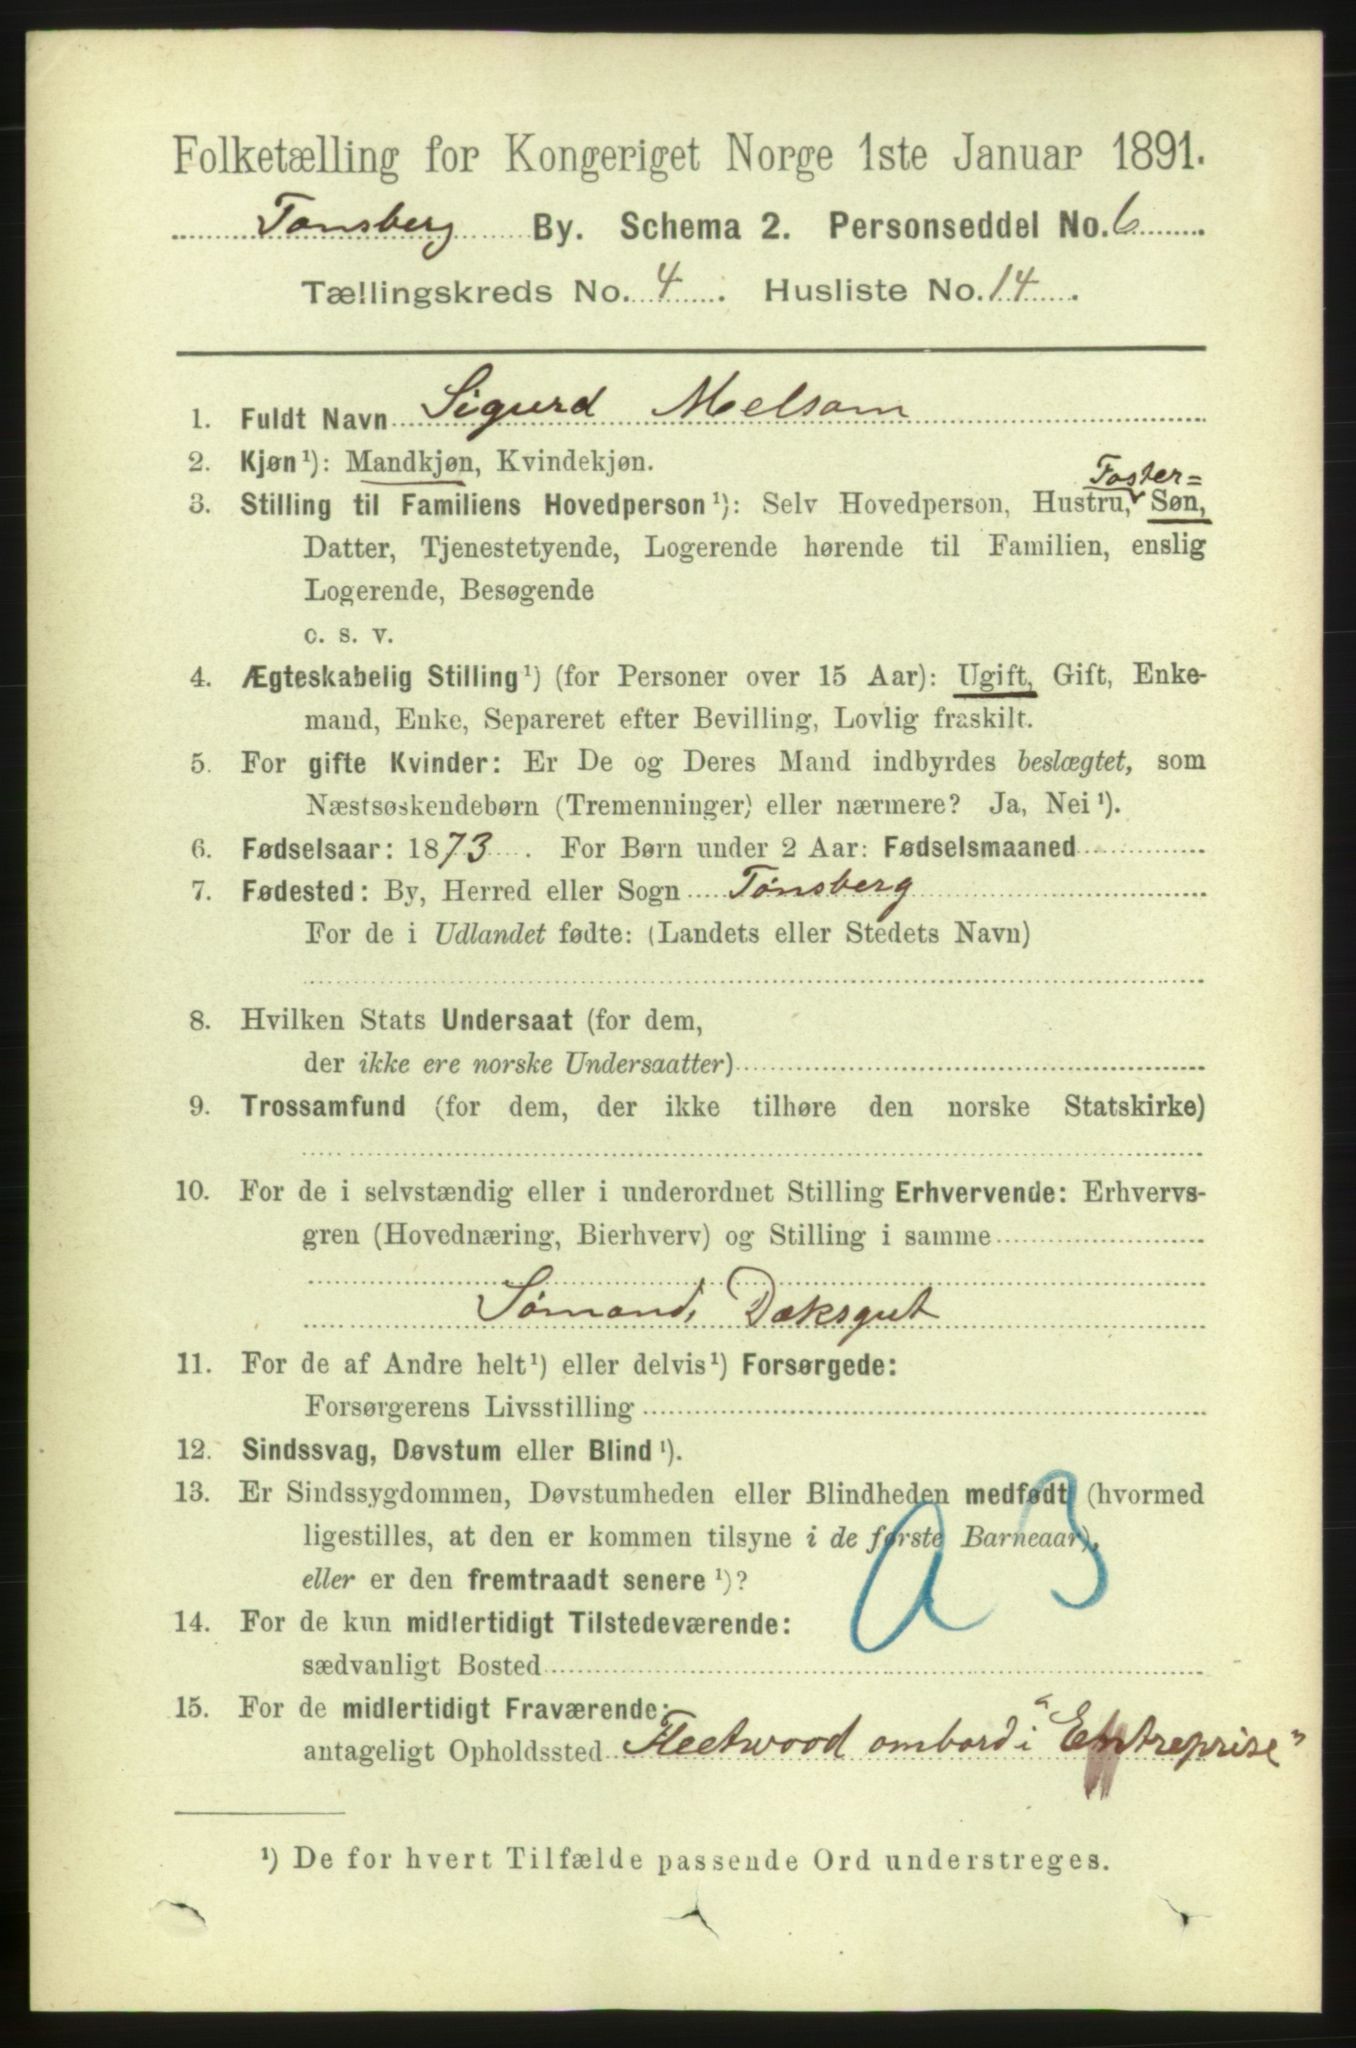 Folketælling for Kongeriget Norge 1ste Januar 1891.
Tønsberg By. Schema 2. Personseddel No. 6
Tællingskreds No. 4. Husliste No. 14.
1. Fuldt Navn Sigurd Melsom
2. Kjøn ¹): Mandkjøn, Kvindekjøn.
Foster=
3. Stilling til Familiens Hovedperson ¹): Selv Hovedperson, Hustru, Søn,
Datter, Tjenestetyende, Logerende hørende til Familien, enslig
Logerende, Besøgende
o. s. v.
4. Ægteskabelig Stilling ¹) (for Personer over 15 Aar): Ugift, Gift, Enke-
mand, Enke, Separeret efter Bevilling, Lovlig fraskilt.
5. For gifte Kvinder: Er De og Deres Mand indbyrdes beslægtet, som
Næstsøskendebørn (Tremenninger) eller nærmere? Ja, Nei ¹).
6. Fødselsaar: 1873. For Børn under 2 Aar: Fødselsmaaned
7. Fødested: By, Herred eller Sogn Tønsberg
For de i Udlandet fødte: (Landets eller Stedets Navn)
8. Hvilken Stats Undersaat (for dem,
der ikke ere norske Undersaatter)
9. Trossamfund (for dem, der ikke tilhøre den norske Statskirke)
10. For de i selvstændig eller i underordnet Stilling Erhvervende: Erhvervs-
gren (Hovednæring, Bierhverv) og Stilling i samme
Sømand, Dæksgut
11. For de af Andre helt ¹) eller delvis ¹) Forsørgede:
Forsørgerens Livsstilling
12. Sindssvag, Døvstum eller Blind ¹).
13. Er Sindssygdommen, Døvstumheden eller Blindheden medfødt (hvormed
ligestilles, at den er kommen tilsyne i de første Barneaar),
eller er den fremtraadt senere ¹)?
a 3
14. For de kun midlertidigt Tilstedeværende:
sædvanligt Bosted
15. For de midlertidigt Fraværende:
antageligt Opholdssted Fleetwood ombord i "Entreprise"
¹) De for hvert Tilfælde passende Ord understreges.